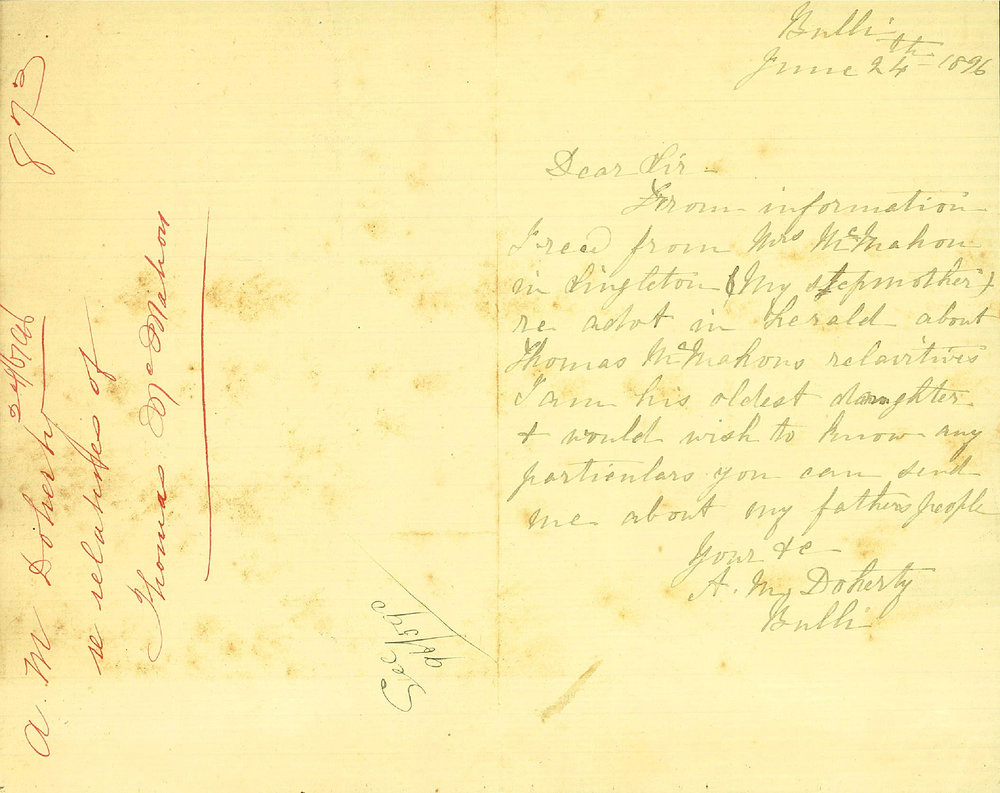 Bulli
June 24th 1896
Dear Sir
From information
I recd from Mrs McMahon
in Singleton (My stepmother)
re advt in Herald about
Thomas McMahons relaitives
I am his oldest daughter
& would wish to know any
particulars you can send
me about my fathers people
Your &c
A. M. Doherty
Bulli
873
A. M Doherty 24/6/96
re relatives of
Thomas McMahon
See